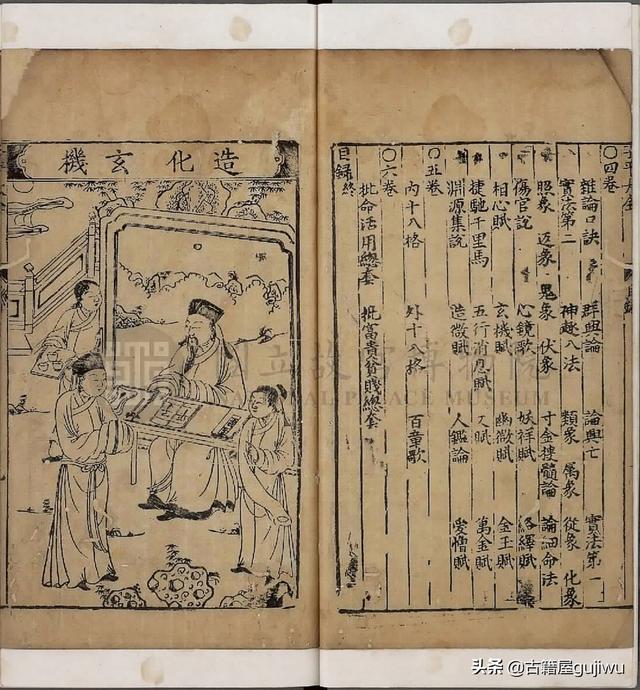 〇四卷
雜論口訣 群興論 論興亡 寶法第一
寶法第二 神趣八法 類象 屬象 從象 化象
照象 返象 鬼象 伏象 寸金搜髓論 論細命法
傷官說 心鏡歌 妖祥賦 絡繹賦
相心賦 玄機賦 幽微賦 金玉賦
捷馳千里馬 五行消息賦 又賦 萬金賦
淵源集說 造微賦 人鑑論 愛憎賦
〇五卷
內十八格 外十八格 百章歌
〇六卷
批命活用總套 批富貴貧賤總套
目錄終
造化玄機
國立故宮博物院
NATIONAL PALACE MUSEUM
头条 @古籍屋gujiwu